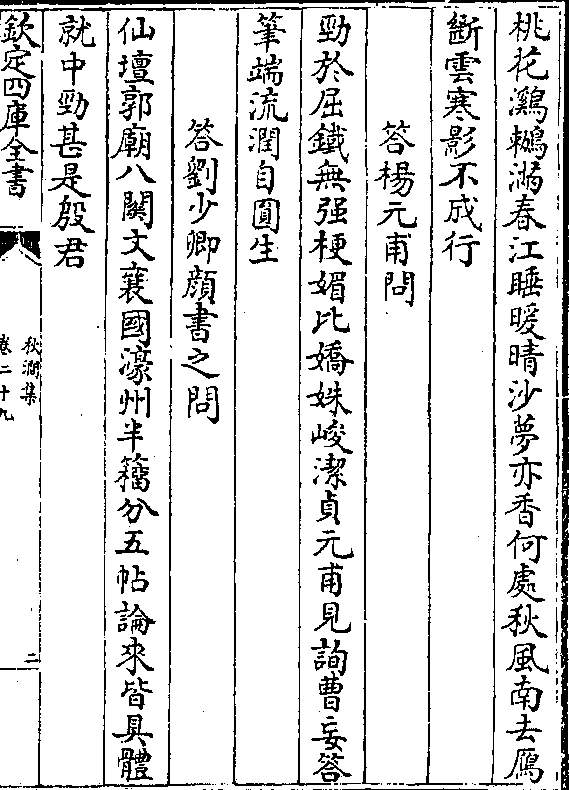 桃花鸂𪆟滿春江睡暖晴沙夢亦香何處秋風南去鴈
斷雲寒影不成行
答楊元甫問
勁於屈鐵無强梗媚比嬌姝峻潔貞元甫見詢曹妄答
筆端流潤自圓生
答劉少卿顔書之問
仙壇郭廟八關文襄國濠州半籕分五帖論來皆具體
就中勁甚是殷君
欽定四庫全書
秋澗集
卷二十九
二